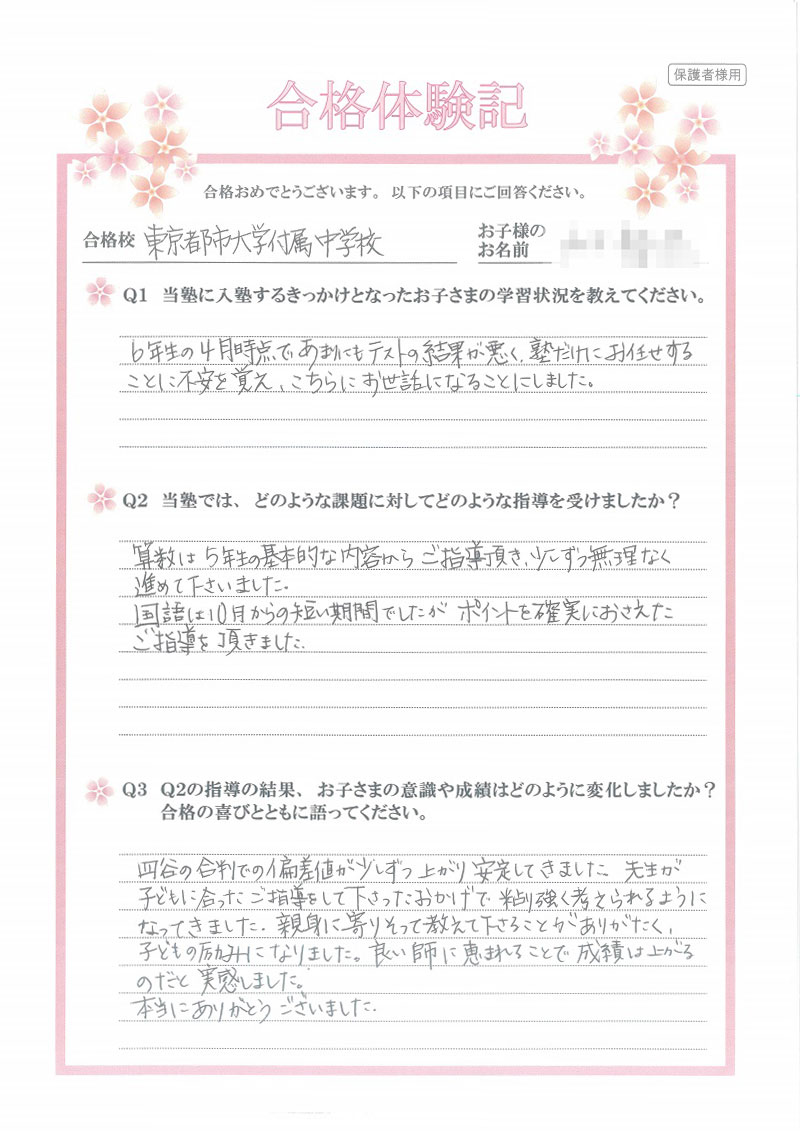 保護者様用
合格体験記
合格おめでとうございます。以下の項目にご回答ください。
合格校 東京都市大学付属中学校
お子様の
お名前
Q1 当塾に入塾するきっかけとなったお子さまの学習状況を教えてください。
6年生の4月時点であまりにもテストの結果が悪く、塾だけにお任せする
ことに不安を覚え、こちらにお世話になることにしました。
Q2 当塾では、どのような課題に対してどのような指導を受けましたか？
算数は5年生の基本的な内容からご指導頂き、少しずつ無理なく
進めて下さいました.
国語は10月からの短い期間でしたがポイントを確実におさえた
ご指導を頂きました.
Q3 Q2の指導の結果、お子さまの意識や成績はどのように変化しましたか？
合格の喜びとともに語ってください。
四谷の合判での偏差値が少しずつ上がり安定してきました 先生が
子どもに合ったご指導をして下さったおかげで粘り強く考えられるように
なってきました. 親身に寄りそって教えて下さることがありがたく、
子どもの励みになりました。良い師に恵まれることで成績は上がる
のだと実感しました。
本当にありがとうございました.